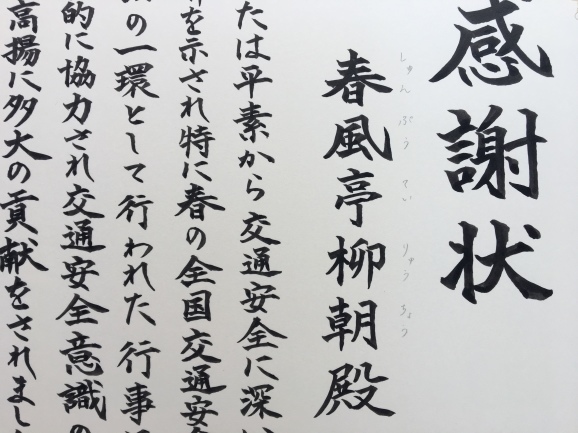 感謝状
しゅんぷうてい りゅうちょう
春風亭柳朝殿
たは平素から交通安全に深い
を示され特に春の全国交通安全
の一環として行われた行事
的に協力され交通安全意識の
高揚に多大の貢献をされまし